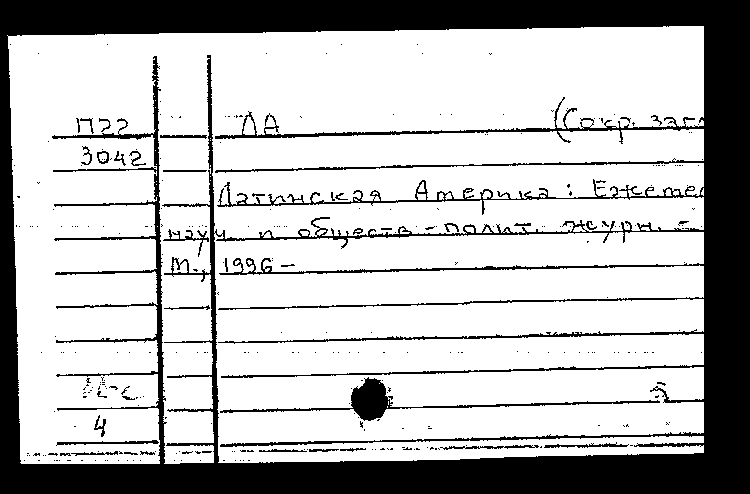 П22 ЛА (Сокр. загл
3042
Латинская Америка: Ежемес
науч и обществ-полит. журн. -
М., 1996-
4